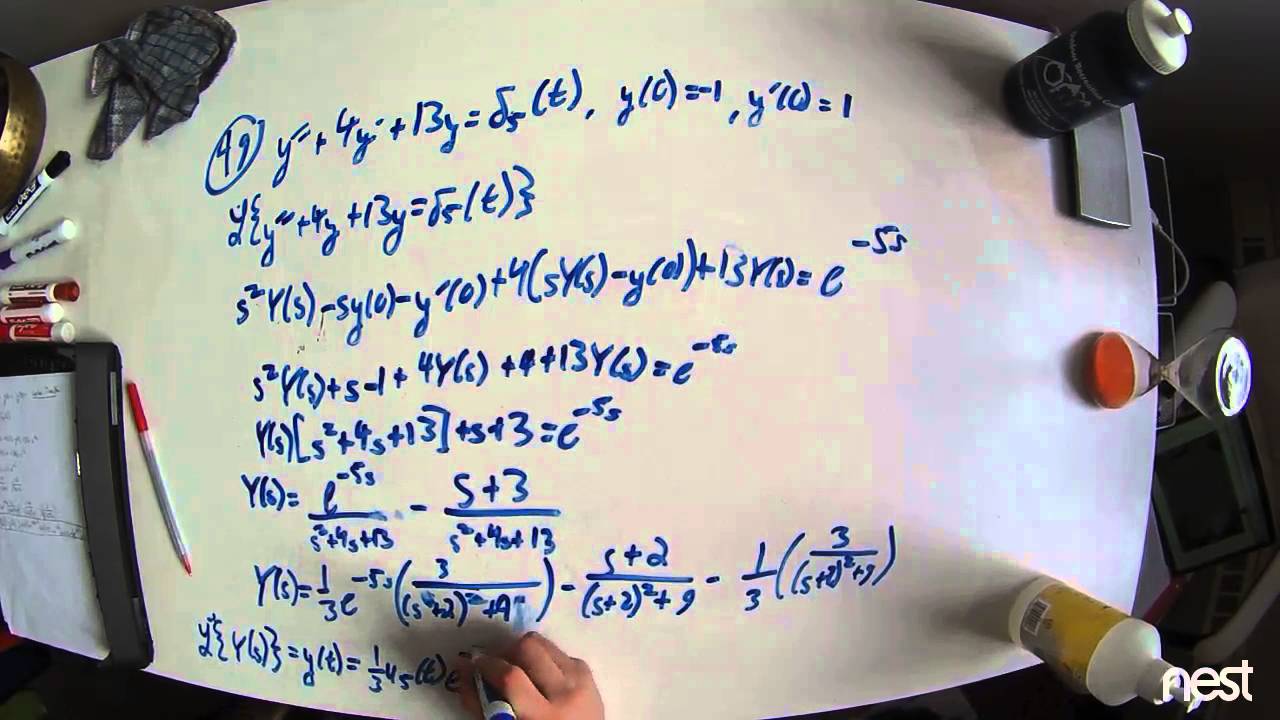 49) y″ + 4y′ + 13y = δ₅(t), y(0) = -1, y′(0) = 1
ℒ{y″ + 4y + 13y = δ₅(t)}
s²Y(s) - sy(0) - y′(0) + 4(sY(s) - y(0)) + 13Y(s) = e^(-5s)
s²Y(s) + s - 1 + 4Y(s) + 4 + 13Y(s) = e^(-5s)
Y(s)[s² + 4s + 13] + s + 3 = e^(-5s)
Y(s) = e^(-5s)/(s² + 4s + 13) - (s + 3)/(s² + 4s + 13)
Y(s) = 1/3 e^(-5s) (3/((s + 2)² + 9)) - (s + 2)/((s + 2)² + 9) - 1/3 (3/((s + 2)² + 9))
ℒ⁻¹{Y(s)} = y(t) = 1/3 u₅(t) e
nest